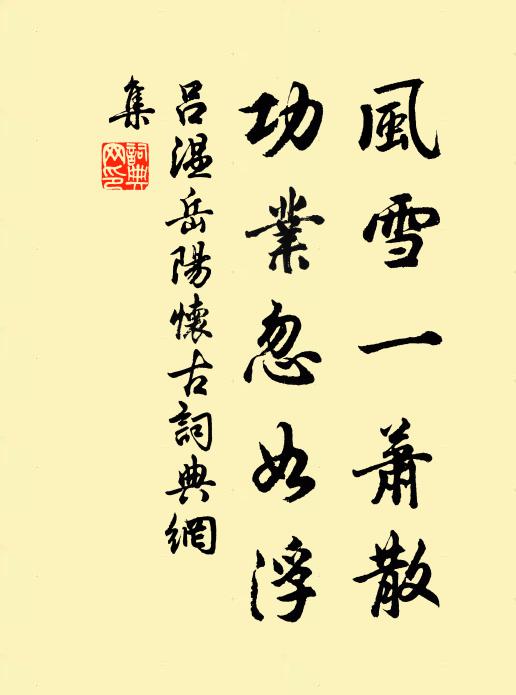 風雪一蕭散
功業忽如浮
呂溫岳陽懷古詞典網
集
詞典網印